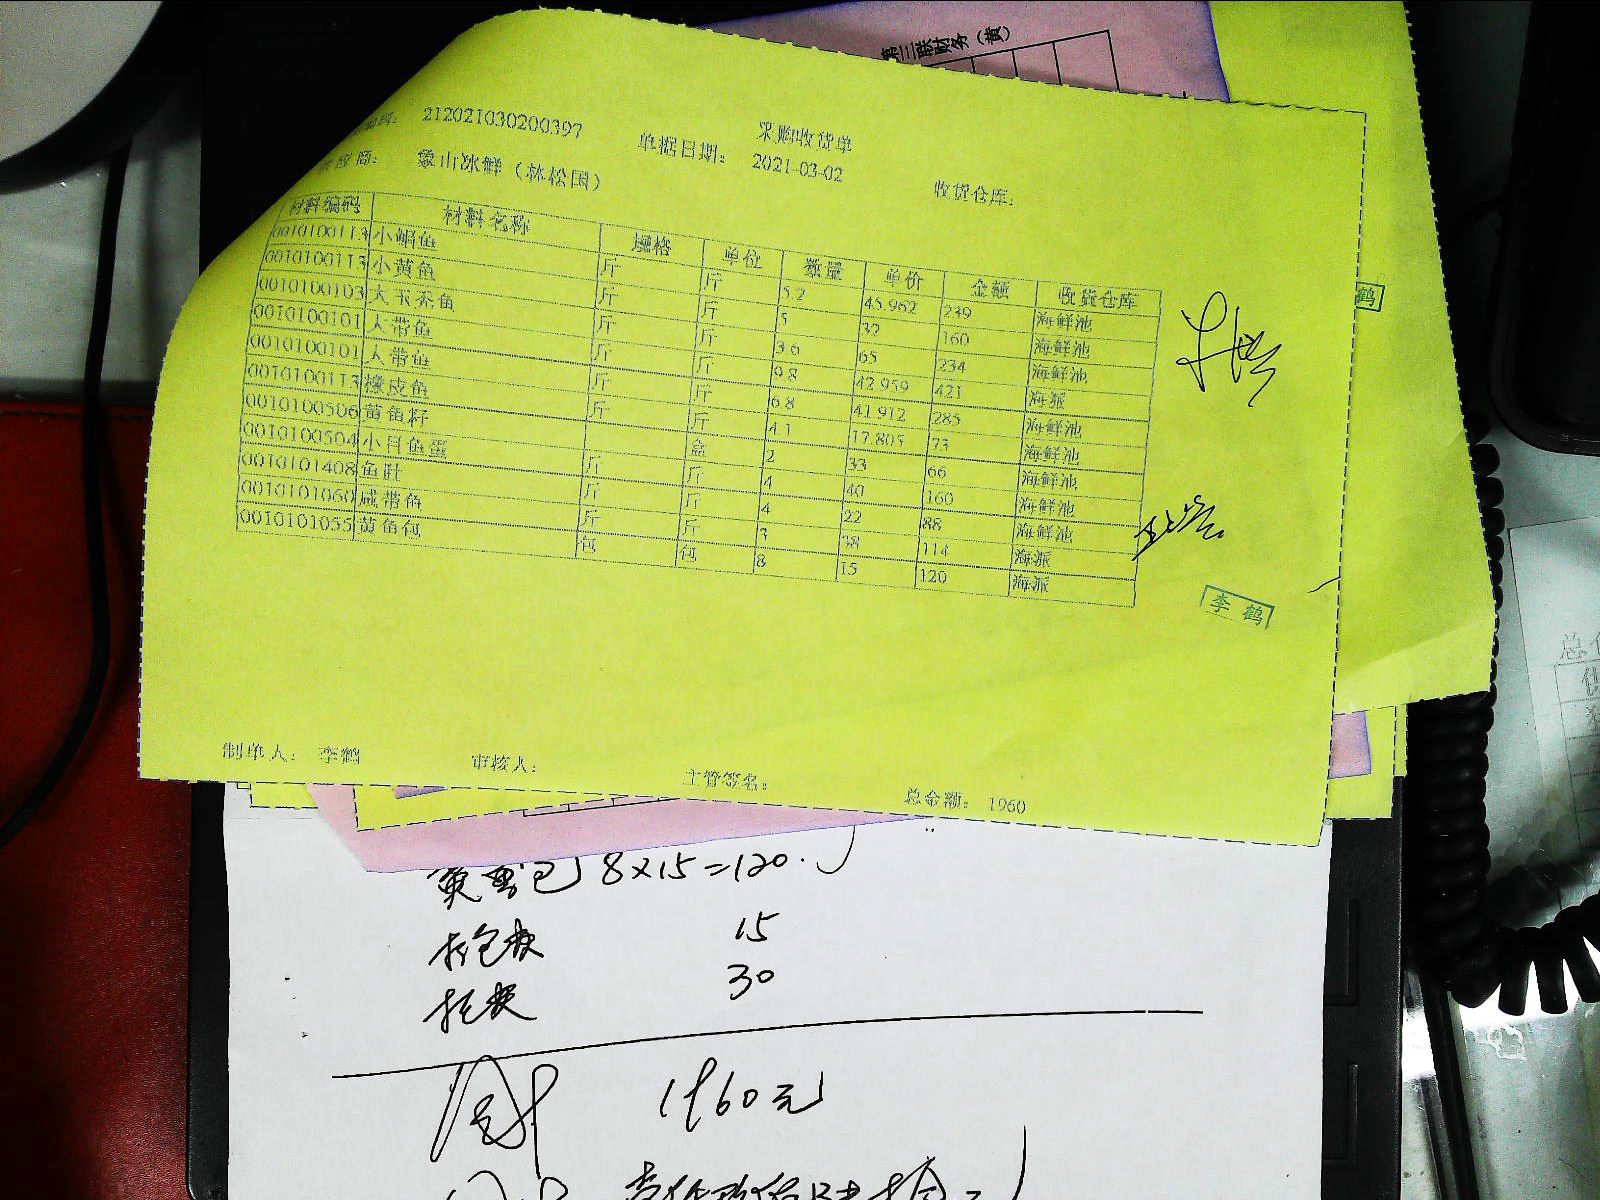 第三联财务（黄）
采购收货单
212021030200397 单据日期： 2021-03-02
应商： 象山冰鲜（林松国） 收货仓库：
材料编码 材料名称 规格 单位 数量 单价 金额 收货仓库
0010100113 小鲳鱼 斤 斤 5.2 45.962 239 海鲜池
0010100113 小黄鱼 斤 斤 5 32 160 海鲜池
0010100103 大玉秃鱼 斤 斤 3.6 65 234 海鲜池
0010100101 大带鱼 斤 斤 9.8 42.959 421 海派
0010100101 大带鱼 斤 斤 6.8 41.912 285 海鲜池
0010100113 橡皮鱼 斤 斤 4.1 17.805 73 海鲜池
0010100506 黄鱼籽 盒 2 33 66 海鲜池
0010100504 小目鱼蛋 斤 斤 4 40 160 海鲜池
0010101408 鱼肚 斤 斤 4 22 88 海鲜池
0010101060 咸带鱼 斤 斤 3 38 114 海派
0010101055 黄鱼包 包 包 8 15 120 海派
鹤
李鹤
制单人： 李鹤 审核人： 主管签名： 总金额： 1960
黄鱼包 8×15=120.
15
30
1960元